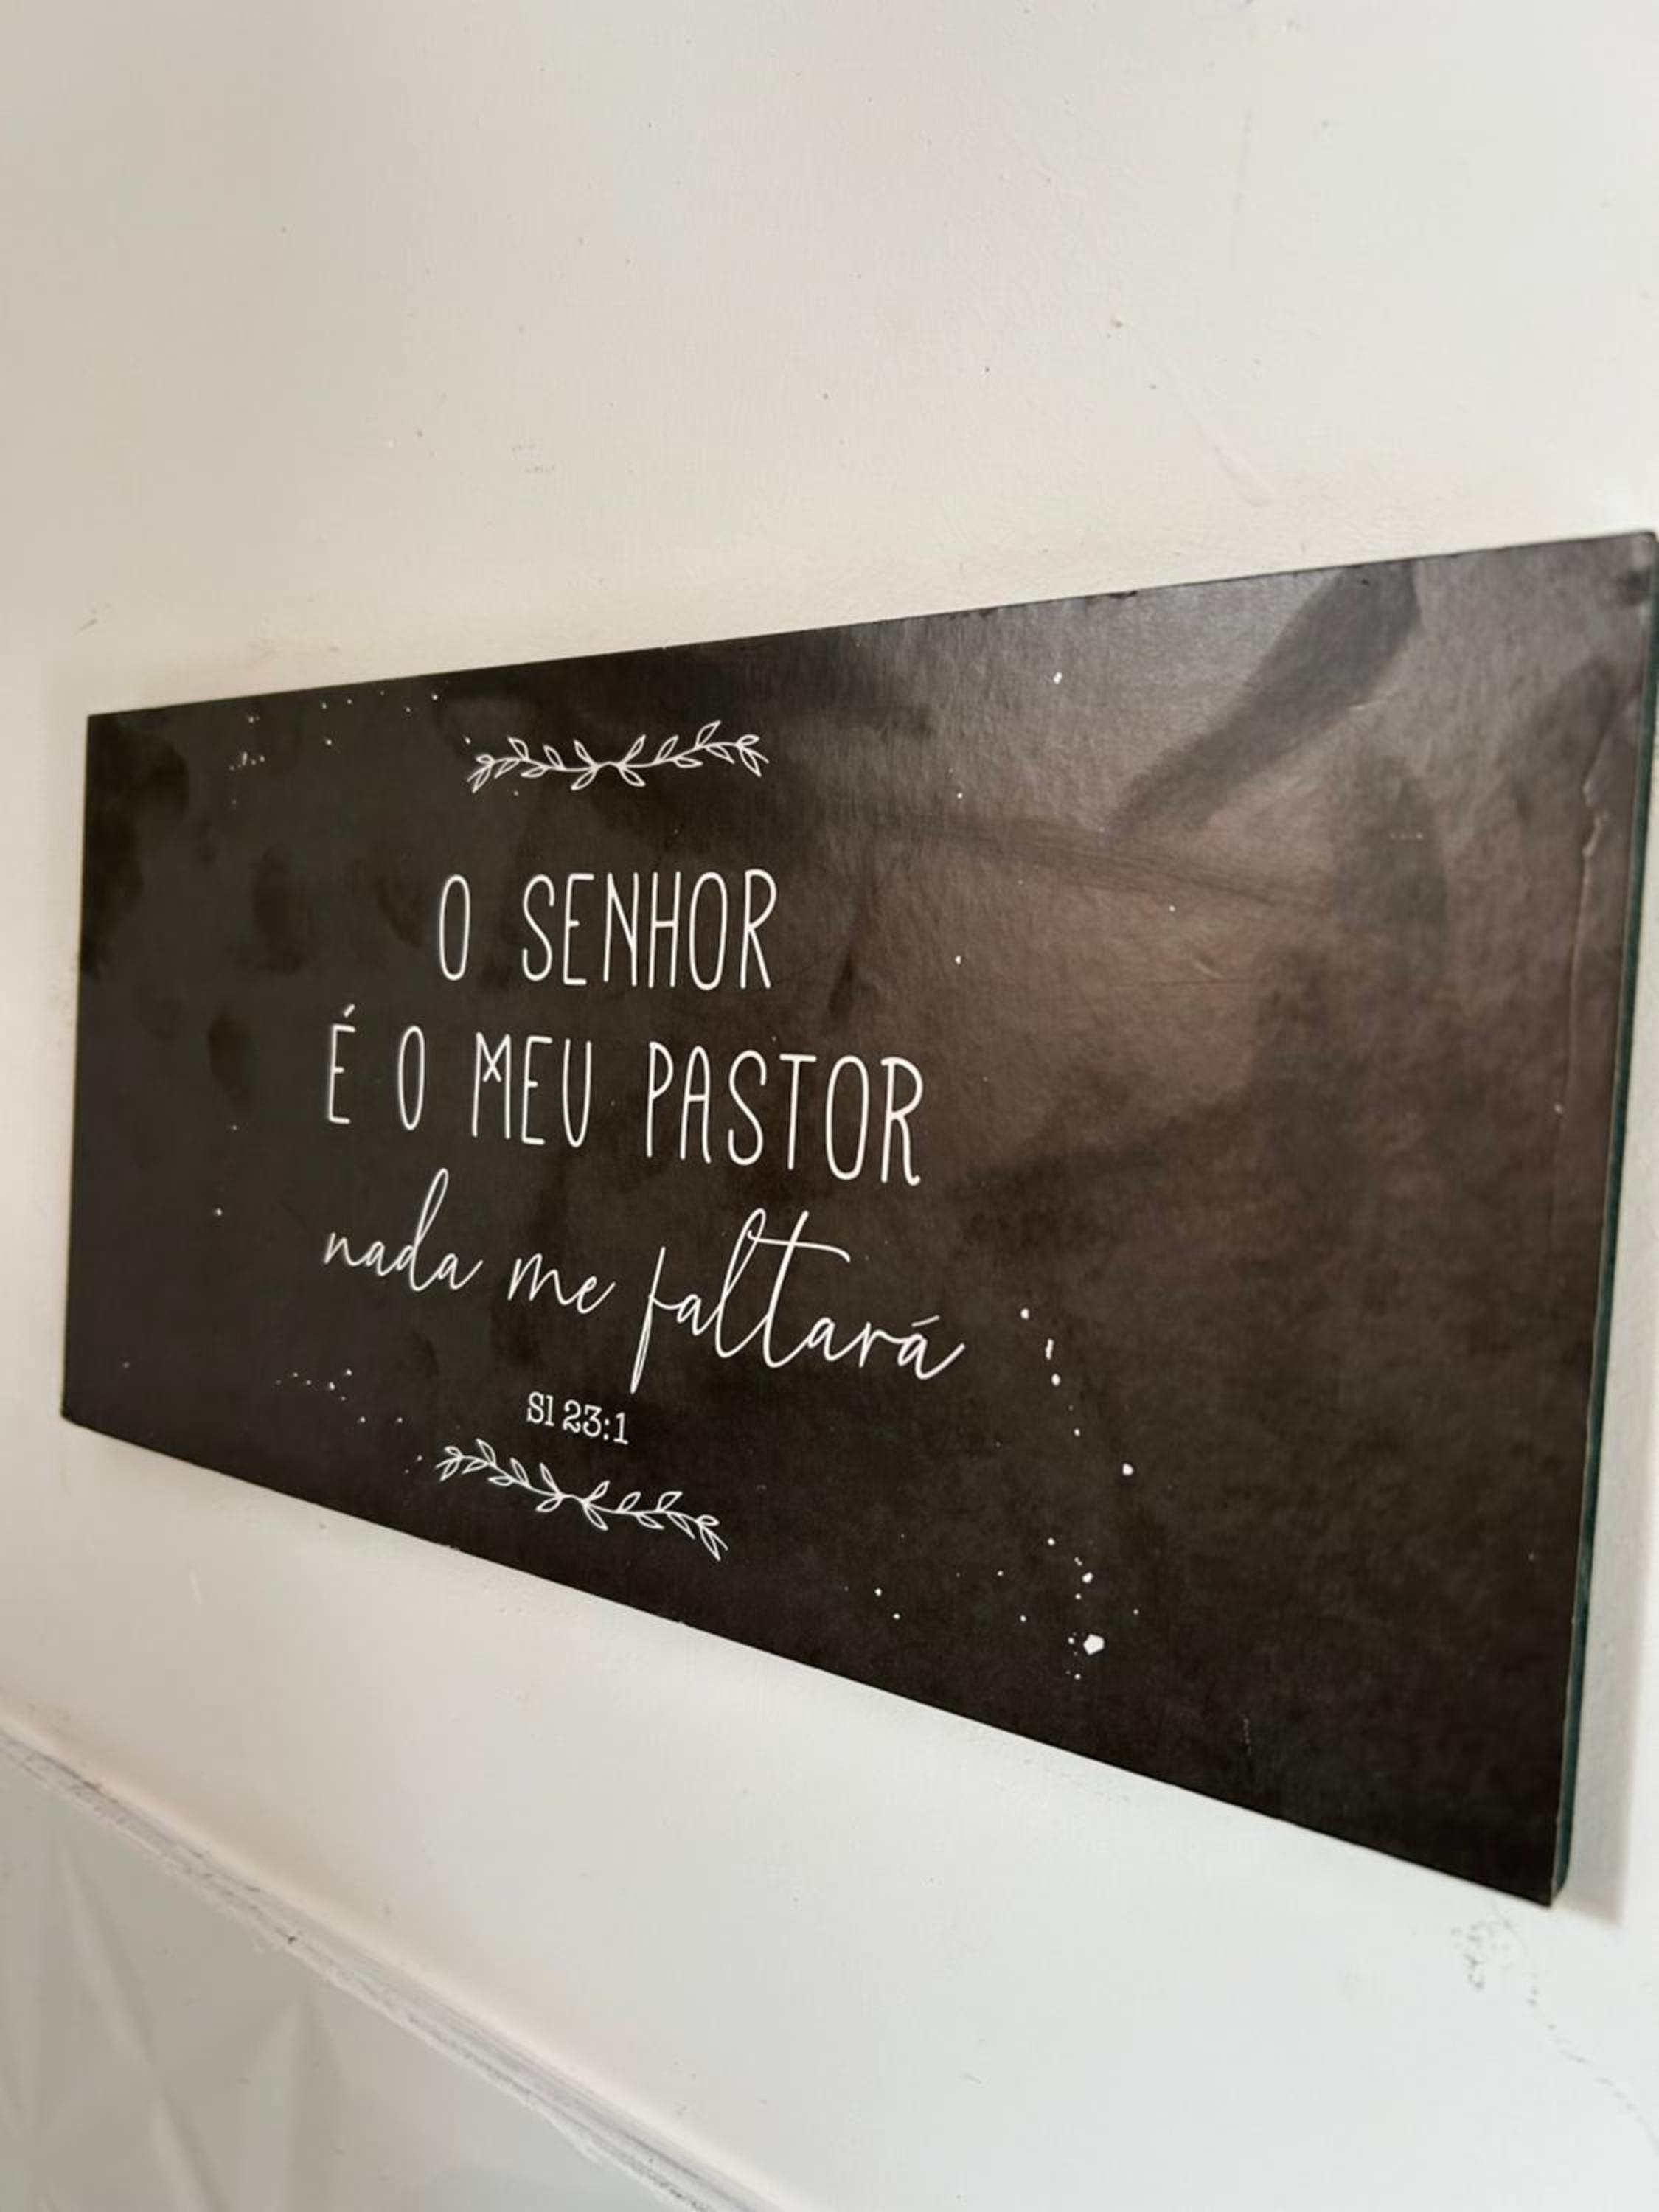 O SENHOR
É O MEU PASTOR
nada me faltará
Sl 23:1